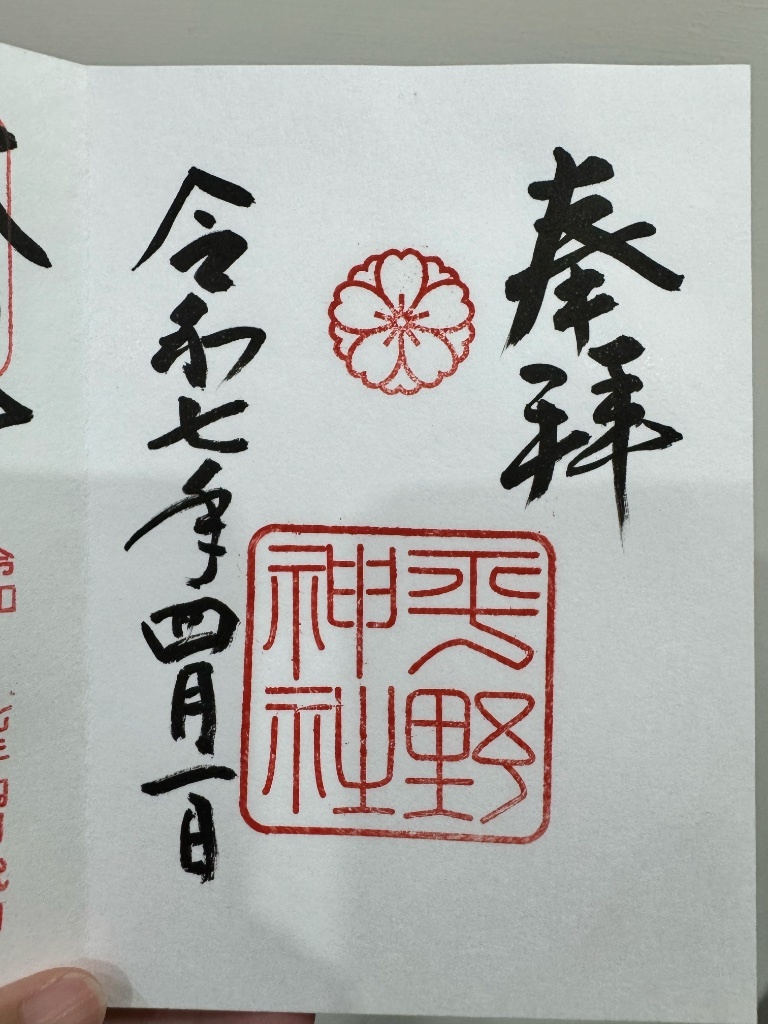 奉拝
平野
神社
令和七年四月一日